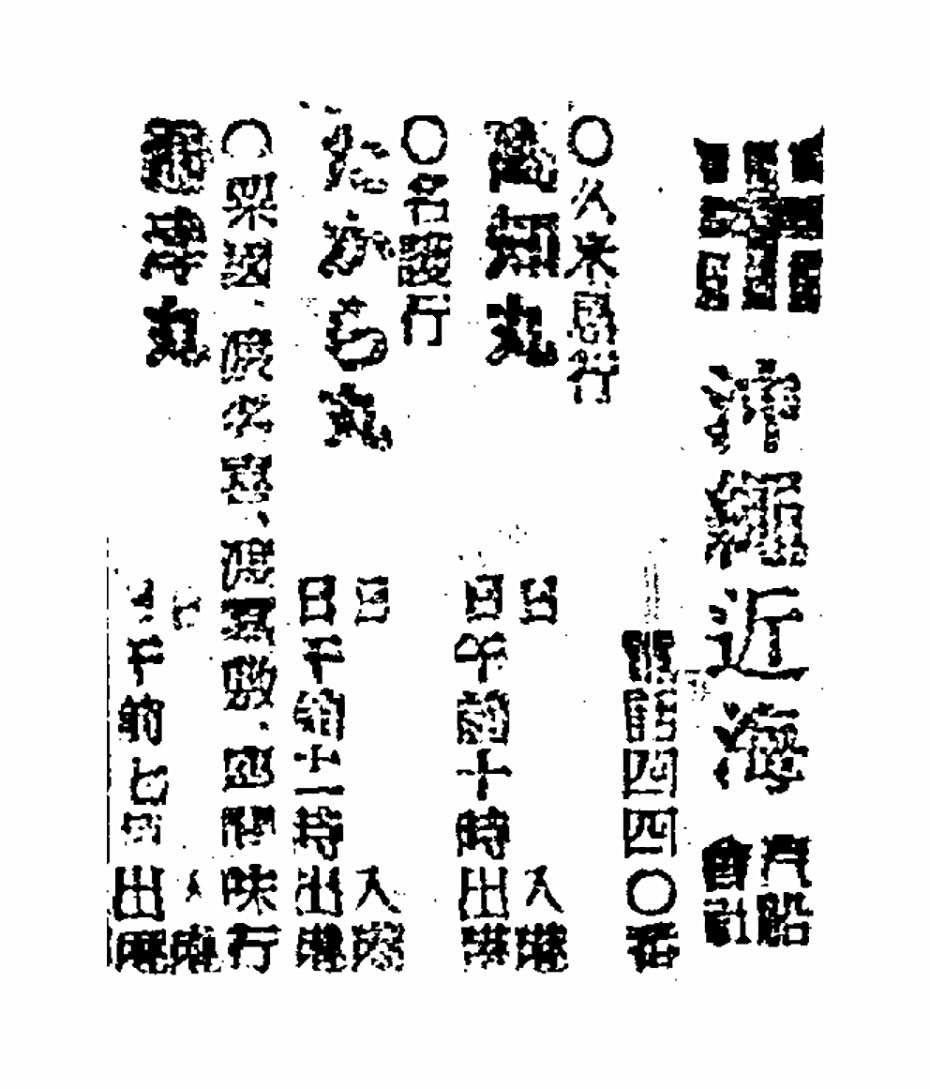 沖繩近海汽船會社
電話四四〇番
〇久米島行
高知丸
日 入港
日午前十時出港
〇名護行
たから丸
日 入港
日午前 時出港
〇粟國、渡名喜、渡嘉敷、座間味行
津丸
入港
午前七時出港